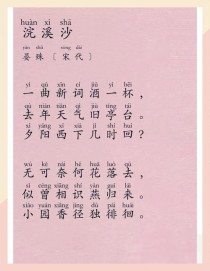 huàn xī shā
浣溪沙
yàn shū sòng dài
晏殊〔宋代〕
yì qǔ xīn cí jiǔ yì bēi
一曲新词酒一杯，
qù nián tiān qì jiù tíng tái
去年天气旧亭台。
xī yáng xī xià jǐ shí huí
夕阳西下几时回？
wú kě nài hé huā luò qù
无可奈何花落去，
sì céng xiāng shí yàn guī lái
似曾相识燕归来。
xiǎo yuán xiāng jìng dú pái huái
小园香径独徘徊。